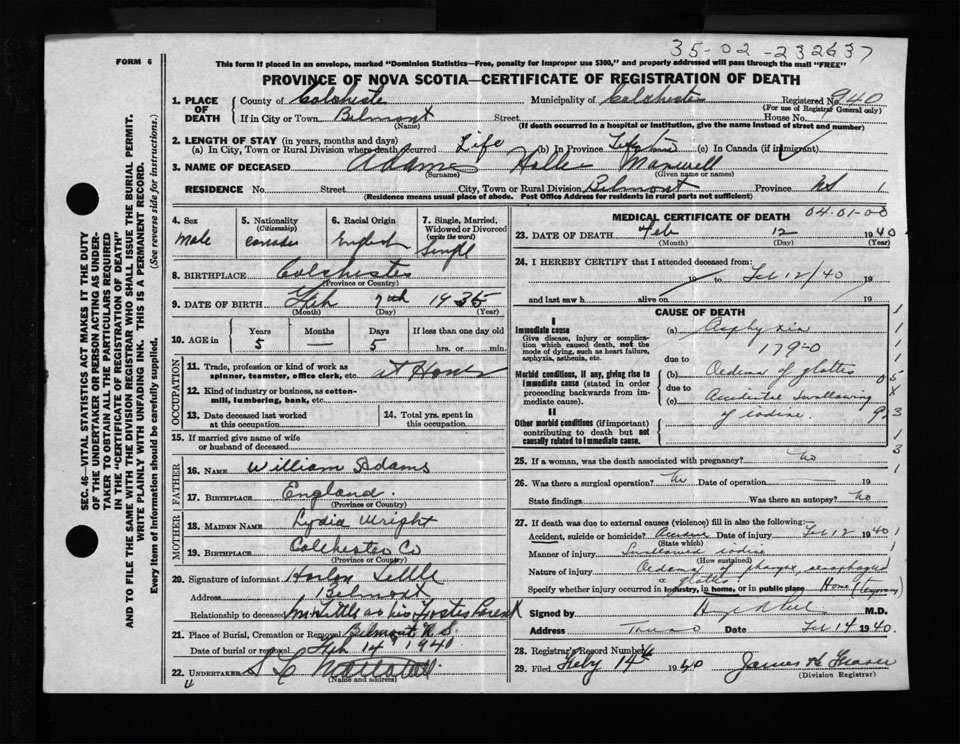 35-02-232637
FORM 6
This form if placed in an envelope, marked "Dominion Statistics—Free, penalty for improper use $300," and properly addressed will pass through the mail "FREE"
PROVINCE OF NOVA SCOTIA—CERTIFICATE OF REGISTRATION OF DEATH
1. PLACE OF DEATH
County of Colchester Municipality of Colchester Registered No. 940
(For use of Registrar General only)
If in City or Town Belmont Street House No.
(Name) (If death occurred in a hospital or institution, give the name instead of street and number)
2. LENGTH OF STAY (in years, months and days)
(a) In City, Town or Rural Division where death occurred Life (b) In Province (c) In Canada (if immigrant)
3. NAME OF DECEASED Adams Maxwell
(Surname) (Given name or names)
RESIDENCE No. Street City, Town or Rural Division Belmont Province NS 1
(Residence means usual place of abode. Post Office Address for residents in rural parts not sufficient)
4. Sex
male
5. Nationality
(Citizenship)
6. Racial Origin
English
7. Single, Married, Widowed or Divorced
(write the word)
Single
8. BIRTHPLACE Colchester
(Province or Country)
9. DATE OF BIRTH Feb 7th 1935
(Month) (Day) (Year)
10. AGE in
Years Months Days If less than one day old
5 — 5 hrs. or min.
OCCUPATION
11. Trade, profession or kind of work as spinner, teamster, office clerk, etc. at Home
12. Kind of industry or business, as cotton-mill, lumbering, bank, etc.
13. Date deceased last worked at this occupation
14. Total yrs. spent in this occupation
15. If married give name of wife or husband of deceased
FATHER
16. NAME William Adams
17. BIRTHPLACE England
(Province or Country)
MOTHER
18. MAIDEN NAME Lydia Wright
19. BIRTHPLACE Colchester Co
(Province or Country)
20. Signature of informant Harlon Little
Address Belmont
Relationship to deceased Mr Little as his Foster Parent
21. Place of Burial, Cremation or Removal Belmont N.S.
Date of burial or removal Feb 14th 1940
22. UNDERTAKER
(Name and address)
MEDICAL CERTIFICATE OF DEATH 04-01-00
23. DATE OF DEATH Feb 12 1940
(Month) (Day) (Year)
24. I HEREBY CERTIFY that I attended deceased from:
19 to Feb 12/40 19
and last saw h alive on 19
CAUSE OF DEATH
I
Immediate cause
Give disease, injury or complication which caused death, not the mode of dying, such as heart failure, asphyxia, asthenia, etc.
(a) Asphyxia
179-0
due to
Morbid conditions, if any, giving rise to immediate cause (stated in order proceeding backwards from immediate cause).
(b) Oedema of glottis
due to
(c) Accidental Swallowing of iodine.
II
Other morbid conditions (if important) contributing to death but not causally related to immediate cause.
25. If a woman, was the death associated with pregnancy? No
26. Was there a surgical operation? No Date of operation —
State findings Was there an autopsy? No
27. If death was due to external causes (violence) fill in also the following:—
Accident, suicide or homicide? Date of injury Feb 12 1940
(State which)
Manner of injury Swallowed iodine
(How sustained)
Nature of injury Oedema of pharynx, oesophagus & glottis.
Specify whether injury occurred in industry, in home, or in public place Home (temporary)
Signed by M.D.
Address Truro Date Feb 14 1940.
28. Registrar's Record Number
29. Filed Feby 14th 1940 James
(Division Registrar)
SEC. 46—VITAL STATISTICS ACT MAKES IT THE DUTY
OF THE UNDERTAKER OR PERSON ACTING AS UNDER-
TAKER TO OBTAIN ALL THE PARTICULARS REQUIRED
IN THE "CERTIFICATE OF REGISTRATION OF DEATH"
AND TO FILE THE SAME WITH THE DIVISION REGISTRAR WHO SHALL ISSUE THE BURIAL PERMIT.
WRITE PLAINLY WITH UNFADING INK. THIS IS A PERMANENT RECORD.
Every item of Information should be carefully supplied. (See reverse side for instructions.)